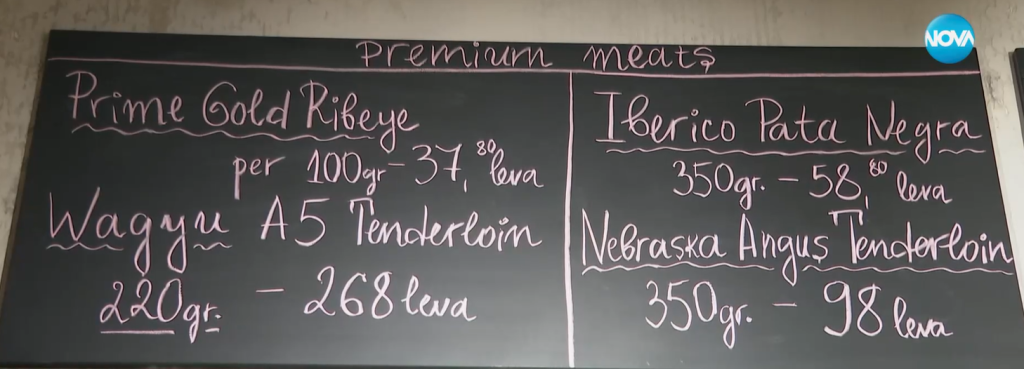 NOVA
Premium meats
Prime Gold Ribeye
per 100gr - 37,80 leva
Wagyu A5 Tenderloin
220gr. - 268 leva
Iberico Pata Negra
350gr. - 58,80 leva
Nebraska Angus Tenderloin
350gr. - 98 leva